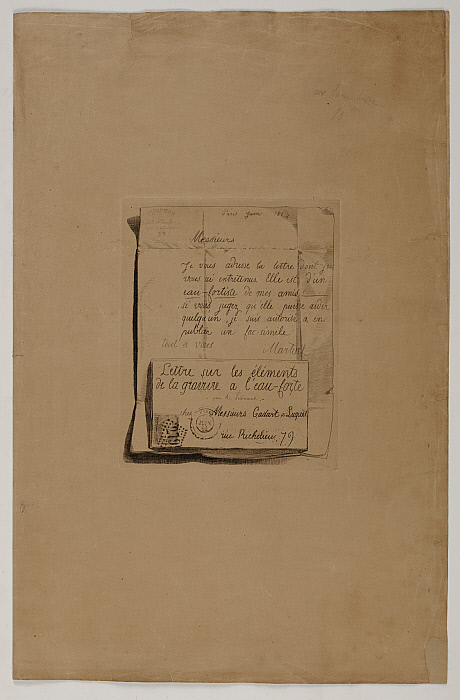 Paris Juin 1864
Messieurs
Je vous adresse la lettre dont je
vous ai entretenus Elle est d'un
eau-fortiste de mes amis
si vous jugez qu'elle puisse aider
quelqu'un, je suis autorisé à en
publier un fac-simile
tout à vous
Martin
Lettre sur les éléments
de la gravure a l'eau-forte
par A.
chez Messieurs Cadart & Luquet
rue Richelieu, 79